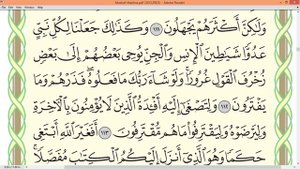 (SECURED) - Adobe Reader
وَلَٰكِنَّ أَكْثَرَهُمْ يَجْهَلُونَ ١١١ وَكَذَٰلِكَ جَعَلْنَا لِكُلِّ نَبِيٍّ
عَدُوًّا شَيَٰطِينَ ٱلْإِنسِ وَٱلْجِنِّ يُوحِى بَعْضُهُمْ إِلَىٰ بَعْضٍ
زُخْرُفَ ٱلْقَوْلِ غُرُورًا ۚ وَلَوْ شَآءَ رَبُّكَ مَا فَعَلُوهُ ۖ فَذَرْهُمْ وَمَا
يَفْتَرُونَ ١١٢ وَلِتَصْغَىٰٓ إِلَيْهِ أَفْـِٔدَةُ ٱلَّذِينَ لَا يُؤْمِنُونَ بِٱلْءَاخِرَةِ
وَلِيَرْضَوْهُ وَلِيَقْتَرِفُوا۟ مَا هُم مُّقْتَرِفُونَ ١١٣ أَفَغَيْرَ ٱللَّهِ أَبْتَغِى
حَكَمًا وَهُوَ ٱلَّذِىٓ أَنزَلَ إِلَيْكُمُ ٱلْكِتَٰبَ مُفَصَّلًا ۚ